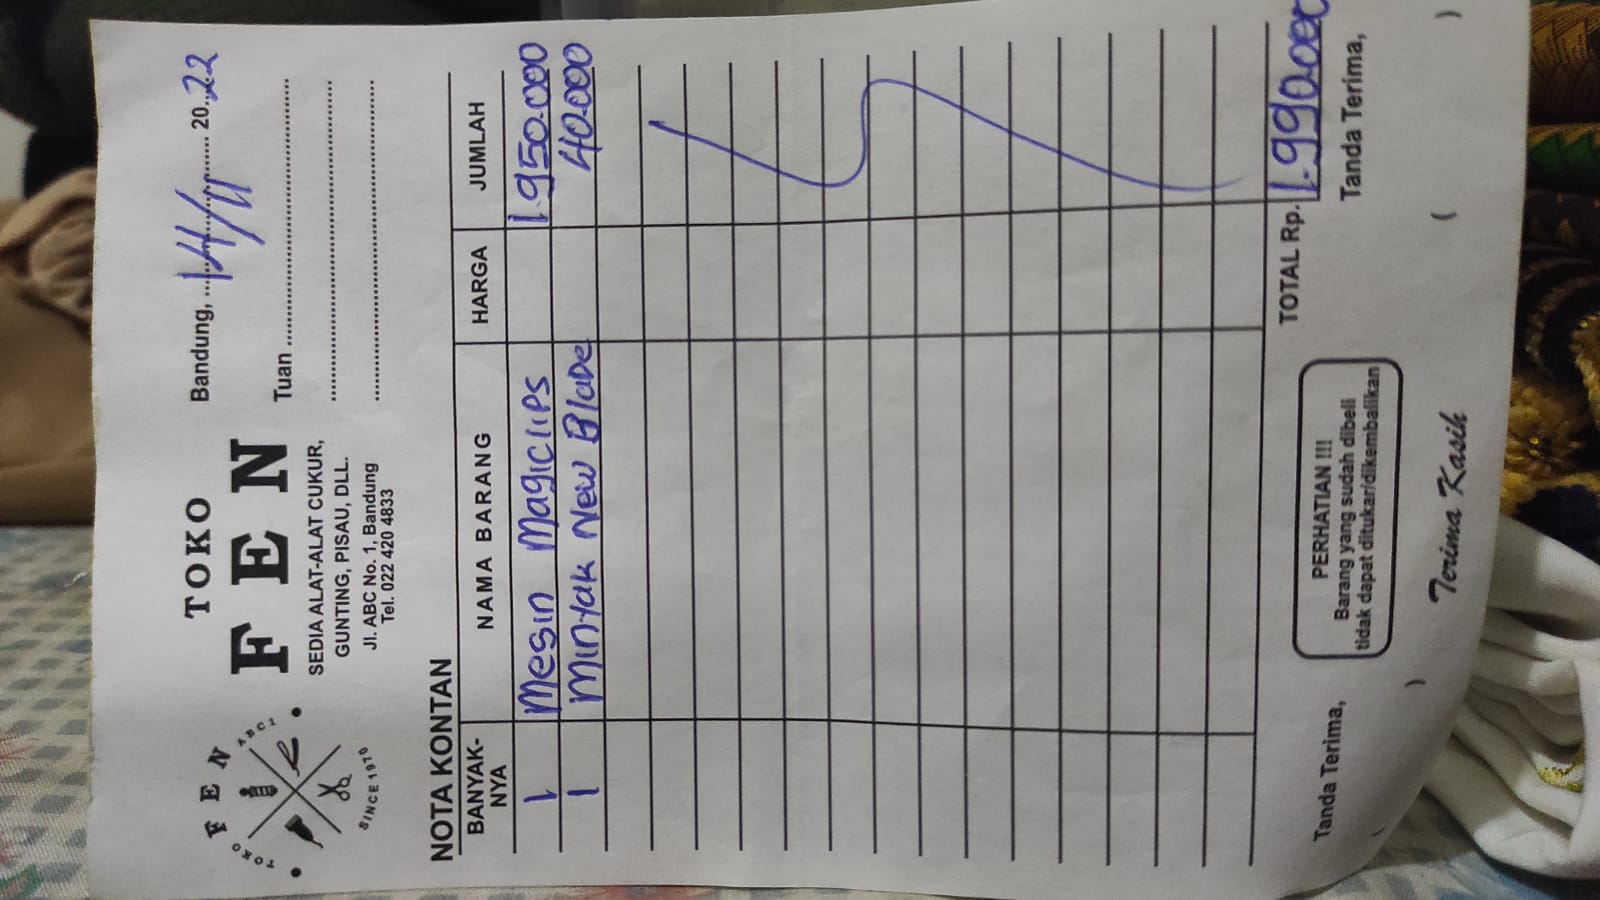 TOKO FEN ABC 1
SINCE 1910
TOKO
FEN
SEDIA ALAT-ALAT CUKUR,
GUNTING, PISAU, DLL.
Jl. ABC No. 1, Bandung
Tel. 022 420 4833
Bandung, 14/11 20.22
Tuan
NOTA KONTAN
BANYAK-NYA NAMA BARANG HARGA JUMLAH
1 Mesin Magiclips 1.950.000
1 Mintak New Blade 40.000
TOTAL Rp. 1.990.000
Tanda Terima,
PERHATIAN !!!
Barang yang sudah dibeli
tidak dapat ditukar/dikembalikan
Tanda Terima,
( )
Terima Kasih
( )